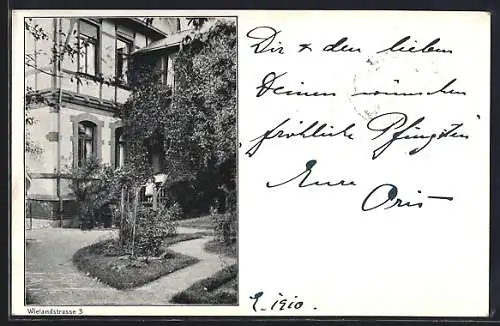 Dir & den lieben
Deinen wünschen
"fröhliche Pfingsten"
Eure
Oris
E. 1910.
Wielandstrasse 3